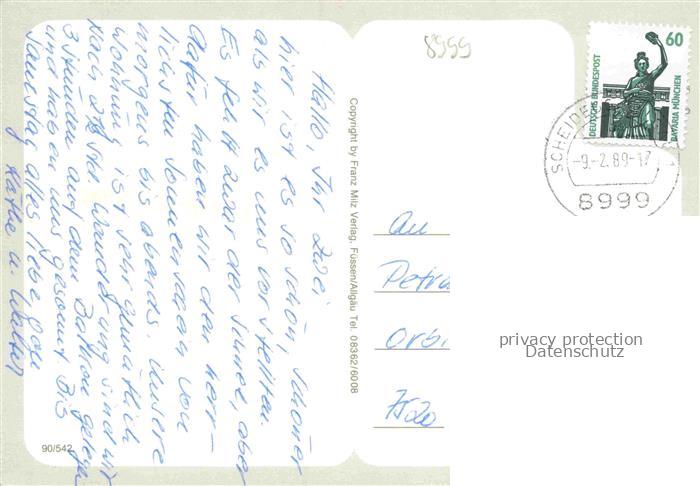 8999
Hallo, Ihr Zwei
hier ist es so schön, schöner
als wir es uns vorstellten.
Es fehlt zwar der Schnee, aber
dafür haben wir den herr-
lichsten Sonnenschein von
morgens bis abends. Unsere
Wohnung ist sehr gemütlich
Nach 2½ Std Wanderung sind wir
3 Stunden auf dem Balkon gelegen
und haben uns gesonnt Bis
Samstag alles liebe
Käthe u. Walter
90/542
Copyright by Franz Milz Verlag, Füssen/Allgäu Tel. 08362/6008
60
DEUTSCHE BUNDESPOST
BAVARIA MÜNCHEN
SCHEIDE
-9.-2.89-17
8999
An
Petra
Orb
7520
privacy protection
Datenschutz